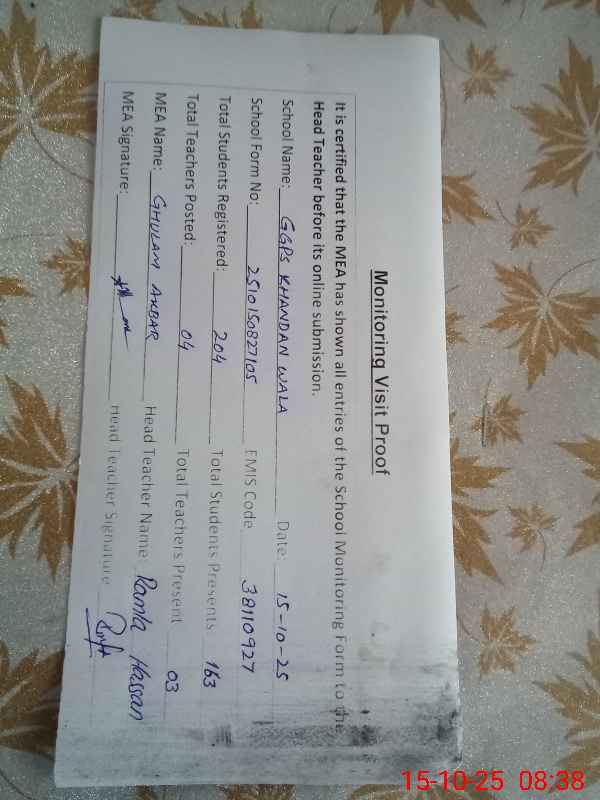 Monitoring Visit Proof
It is certified that the MEA has shown all entries of the School Monitoring Form to the
Head Teacher before its online submission.
School Name: GGPS KHANDAN WALA Date: 15-10-25
School Form No: 2510150827105 EMIS Code 38110927
Total Students Registered: 204 Total Students Presents 163
Total Teachers Posted: 04 Total Teachers Present 03
MEA Name: GHULAM AKBAR Head Teacher Name: Ramla Hassan
MEA Signature: Head Teacher Signature
15-10-25 08:38